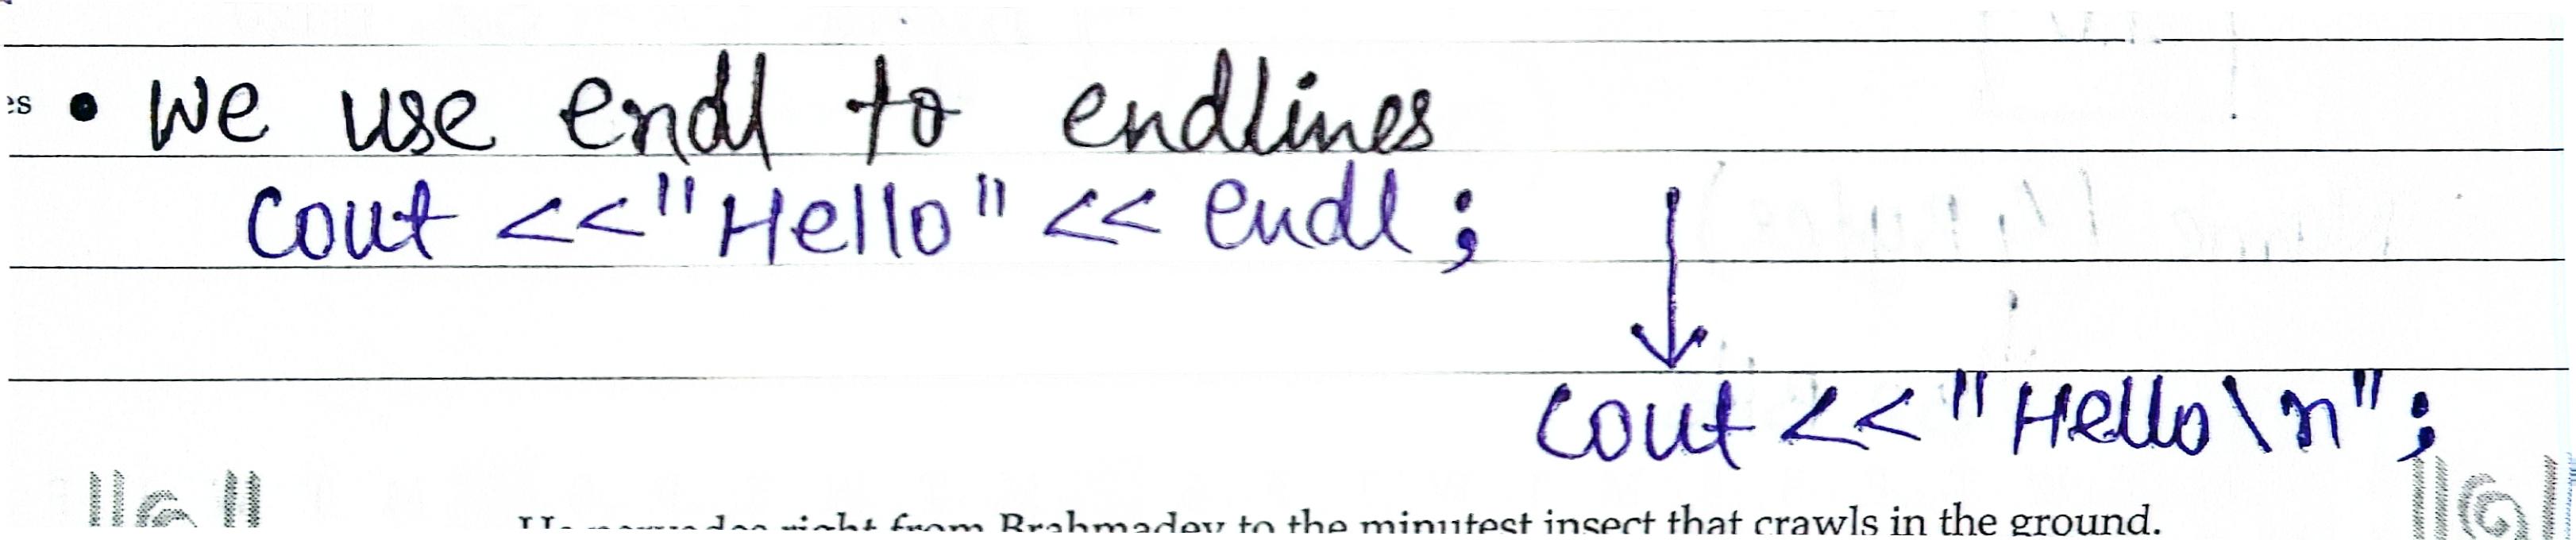 es • We use endl to endlines
cout <<"Hello" << endl;
cout <<"Hello\n";
right from Brahmadev to the minutest insect that crawls in the ground.